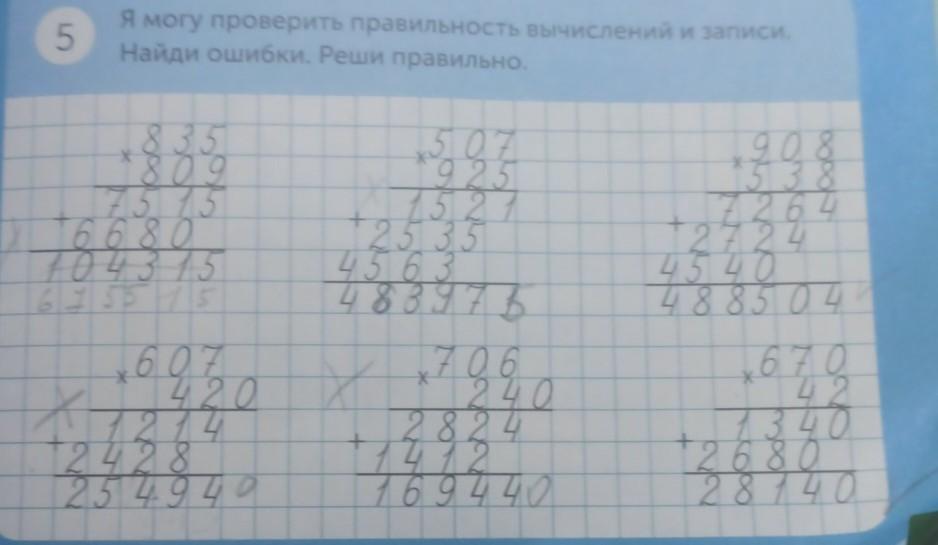 5
Я могу проверить правильность вычислений и записи.
Найди ошибки. Реши правильно.
× 835
809
+ 7515
6680
104315
675515
× 507
925
+ 1521
2535
4563
483975
× 908
538
+ 7264
2724
4540
488504
× 607
420
+ 1214
2428
254940
× 706
240
+ 2824
1412
169440
× 670
42
+ 1340
2680
28140